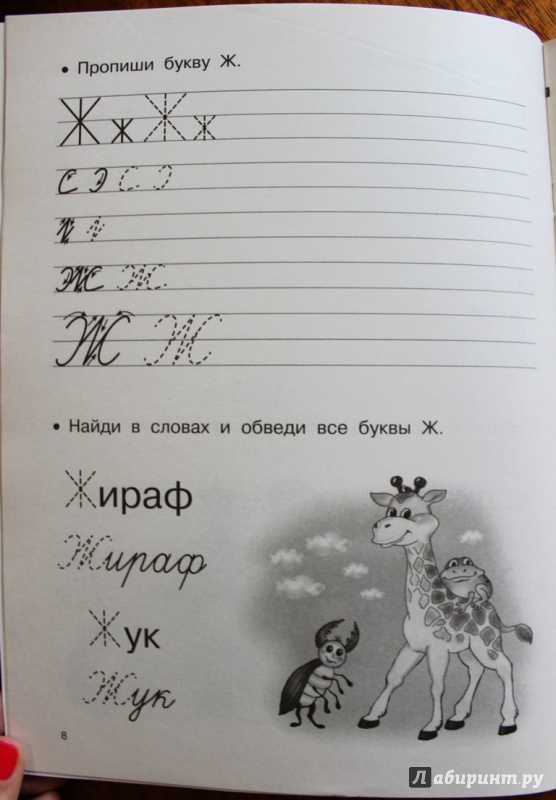 • Пропиши букву Ж.
Ж ж Ж ж
С Э С Э
ж ж
Ж Ж
• Найди в словах и обведи все буквы Ж.
Жираф
Жираф
Жук
Жук
8
Лабиринт.ру